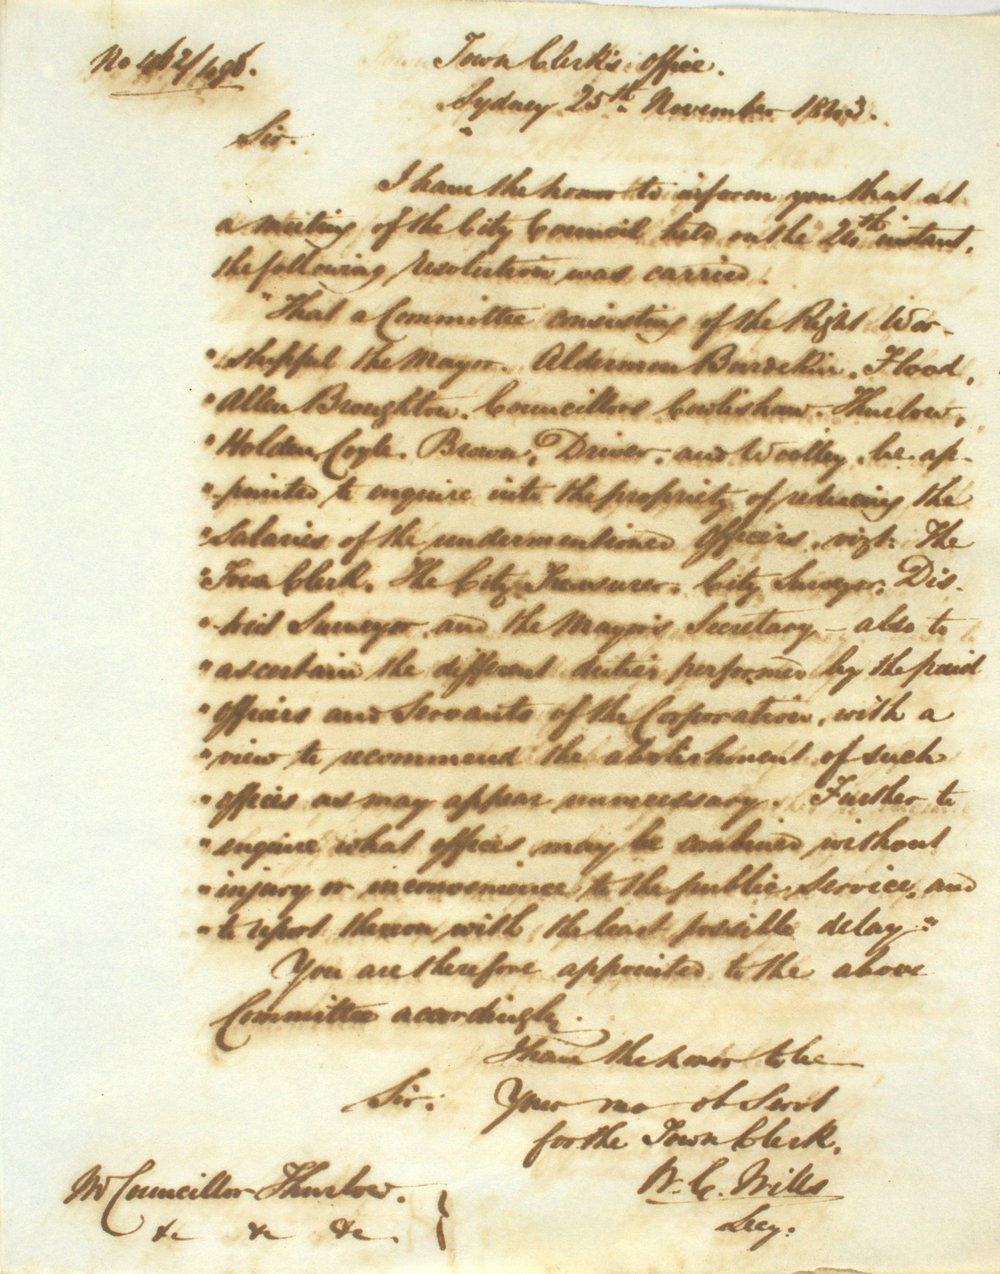 No 462/496.
Town Clerk's Office.
Sydney 25th November 1843.
Sir.
I have the honor to inform you that at
a meeting of the City Council held on the 24th instant,
the following resolution was carried.
"That a Committee consisting of the Right Wor-
"shipful the Mayor. Aldermen Burdekin, Flood,
"Allen Broughton. Councillors Cowlishaw. Thurlow,
"Holden Coyle. Brown, Driver, and Woolley, be ap-
"pointed to enquire into the propriety of reducing the
"Salaries of the undermentioned Officers, vizt: The
"Town Clerk. The City Treasurer. City Surveyor. Dis-
"trict Surveyor and the Mayor's Secretary – also to
"ascertain the different duties performed by the paid
"officers and Servants of the Corporation, with a
"view to recommend the abolishment of such
"offices as may appear unnecessary. Further to
"enquire what offices may be combined without
"injury or inconvenience to the public service, and
"to report thereon with the least possible delay."
You are therefore appointed to the above
Committee accordingly.
I have the honor to be
Sir.
Your mo ob Servt
for the Town Clerk.
W. C. Wills
Secy.
Mr Councillor Thurlow.
&c &c &c.